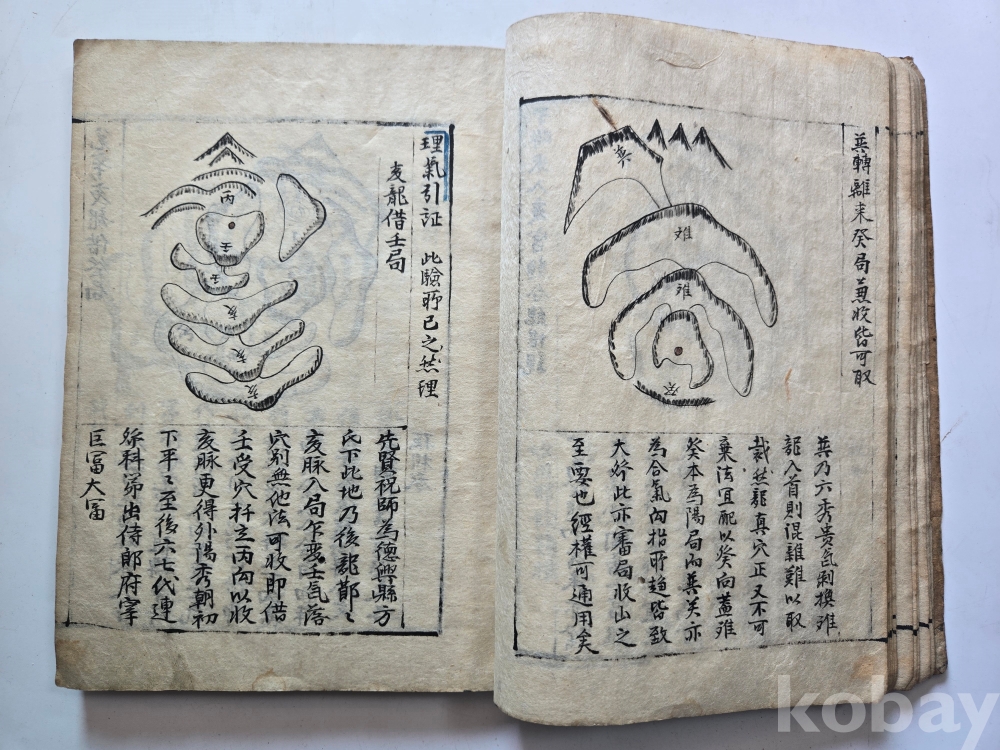 巽轉離来癸局兼收皆可取
巽
離
離
癸
巽乃六秀贵氣剥換離
龍入首則混雜難以取
裁然龍真穴正又不可
棄法宜配以癸向蓋離
癸本為陽局而巽关亦
為合氣向指所趨皆致
大發此亦審局收山之
至要也經權可通用矣
理氣引証 此驗所已之然理
亥龍借壬局
丙
壬
壬
亥
亥
亥
先賢祝師為德興縣方
氏下此地乃後龍節〻
亥脉入局乍變壬氣落
穴別無他法可收即借
壬受穴扦立丙向以收
亥脉更得外陽秀朝初
下平〻至後六七代連
發科第出侍郎府宰
巨富大富
kobay